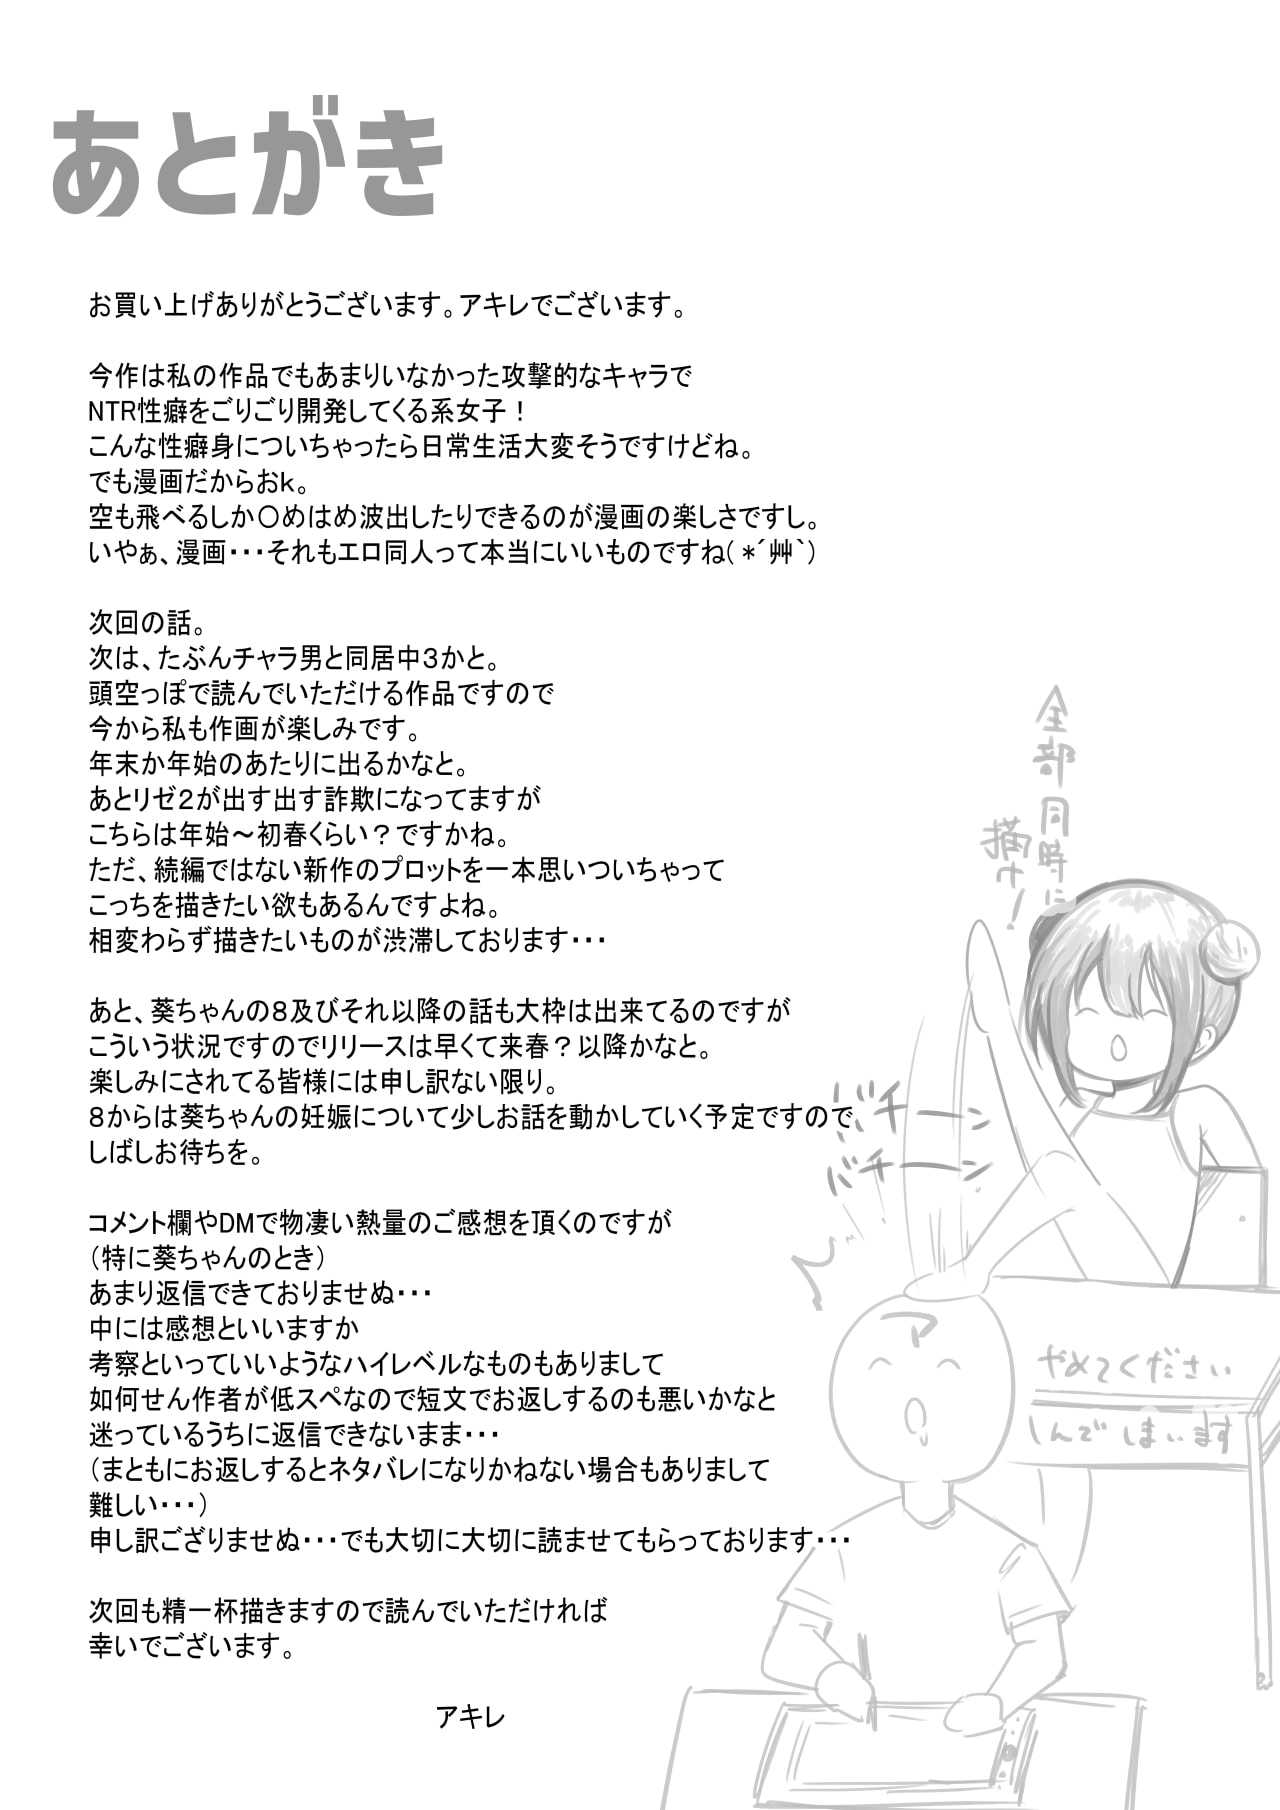 あとがき
お買い上げありがとうございます。アキレでございます。
今作は私の作品でもあまりいなかった攻撃的なキャラで
NTR性癖をごりごり開発してくる系女子！
こんな性癖身についちゃったら日常生活大変そうですけどね。
でも漫画だからおｋ。
空も飛べるしか〇めはめ波出したりできるのが漫画の楽しさですし。
いやぁ、漫画・・・それもエロ同人って本当にいいものですね（ *´艸`）
次回の話。
次は、たぶんチャラ男と同居中３かと。
頭空っぽで読んでいただける作品ですので
今から私も作画が楽しみです。
年末か年始のあたりに出るかなと。
あとリゼ２が出す出す詐欺になってますが
こちらは年始～初春くらい？ですかね。
ただ、続編ではない新作のプロットを一本思いついちゃって
こっちを描きたい欲もあるんですよね。
相変わらず描きたいものが渋滞しております・・・
あと、葵ちゃんの８及びそれ以降の話も大枠は出来てるのですが
こういう状況ですのでリリースは早くて来春？以降かなと。
楽しみにされてる皆様には申し訳ない限り。
８からは葵ちゃんの妊娠について少しお話を動かしていく予定ですので
しばしお待ちを。
コメント欄やDMで物凄い熱量のご感想を頂くのですが
（特に葵ちゃんのとき）
あまり返信できておりませぬ・・・
中には感想といいますか
考察といっていいようなハイレベルなものもありまして
如何せん作者が低スペなので短文でお返しするのも悪いかなと
迷っているうちに返信できないまま・・・
（まともにお返しするとネタバレになりかねない場合もありまして
難しい・・・）
申し訳ござりませぬ・・・でも大切に大切に読ませてもらっております・・・
次回も精一杯描きますので読んでいただければ
幸いでございます。
アキレ
全部同時に
描け！
バチーン
バチーン
ア
やめてください
しんでしまいます